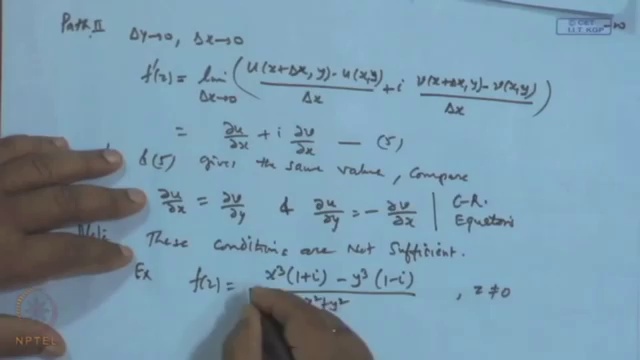 Path II Δy→0, Δx→0
© CET
I.I.T. KGP
f'(z) = lim Δx→0 ( u(x+Δx, y) - u(x,y) / Δx + i v(x+Δx, y) - v(x,y) / Δx )
= ∂u/∂x + i ∂v/∂x — (5)
& (5) gives the same value, Compare
∂u/∂x = ∂v/∂y & ∂u/∂y = - ∂v/∂x | C-R. Equations
These conditions are Not Sufficient.
Ex f(z) = x³(1+i) - y³(1-i) / x²+y² , z ≠ 0
NPTEL